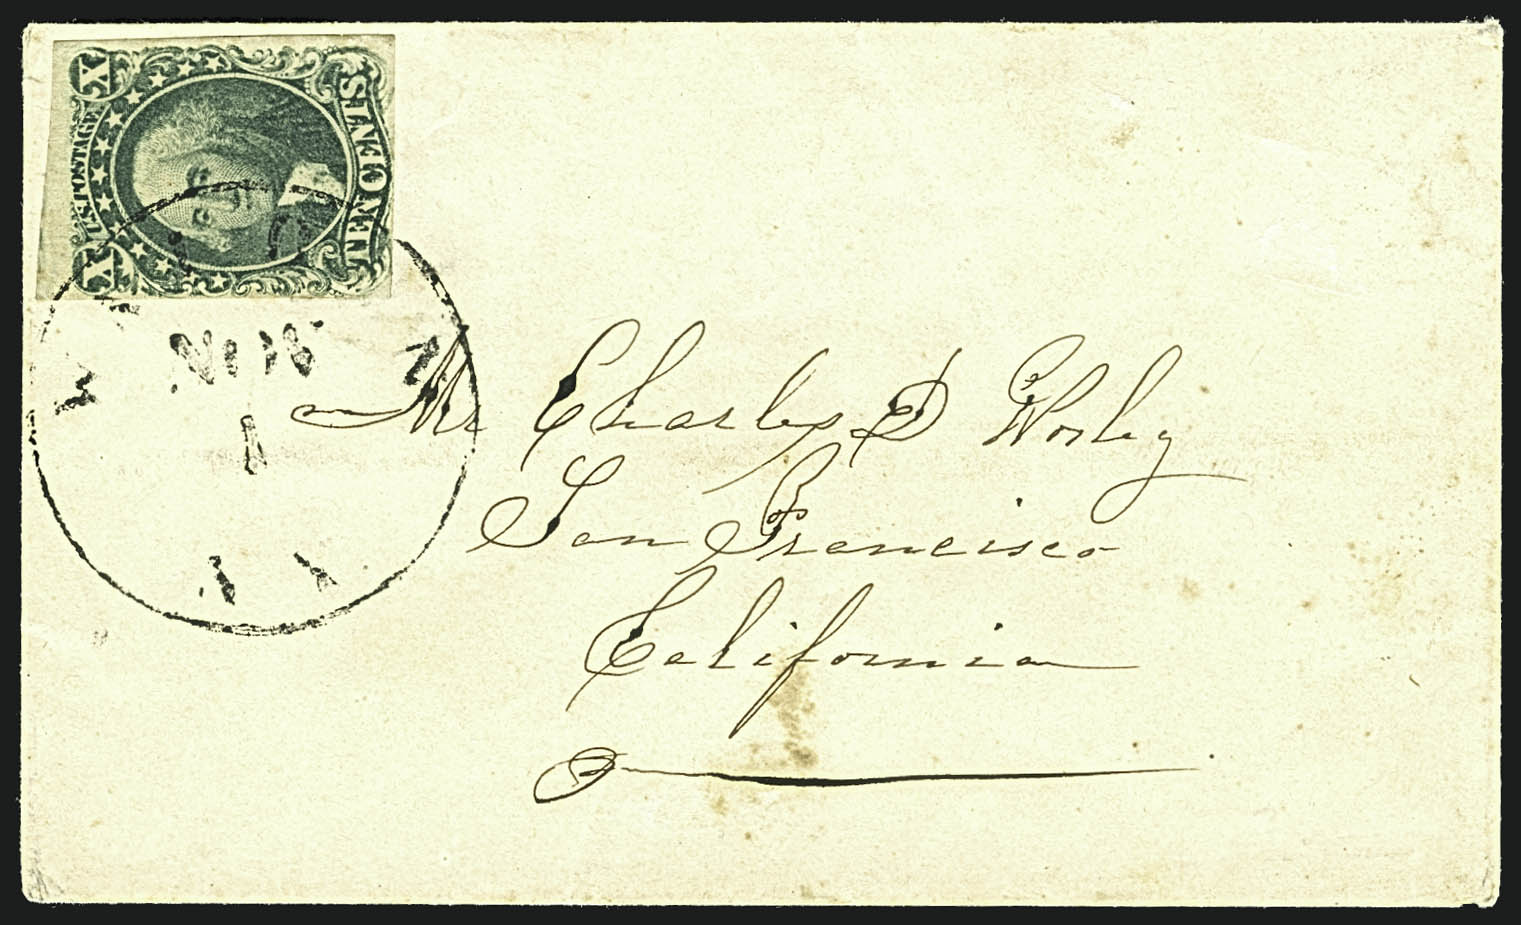 X U.S. POSTAGE X
TEN CENTS
1
Mr Charles D Worley
San Francisco
California